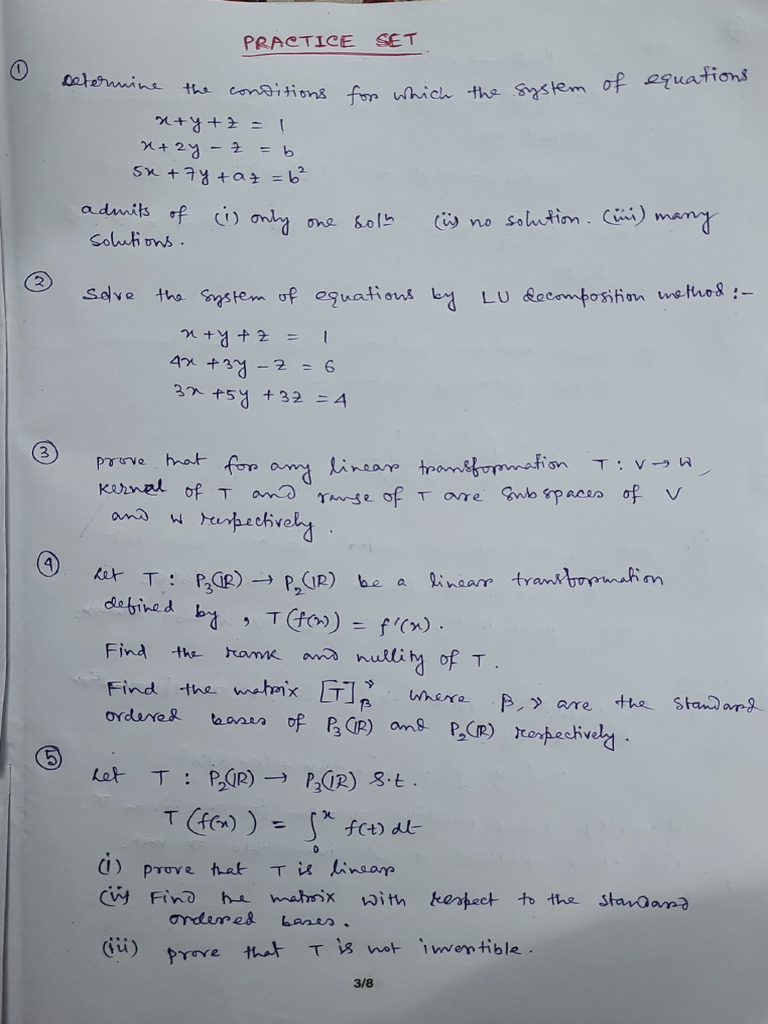 PRACTICE SET
① Determine the conditions for which the system of equations
x+y+z = 1
x+2y-z = b
5x+7y+az = b²
admits of (i) only one solⁿ (ii) no solution. (iii) many
solutions.
② Solve the system of equations by LU decomposition method :-
x+y+z = 1
4x+3y-z = 6
3x+5y+3z = 4
③ prove that for any linear transformation T : V→W,
kernel of T and range of T are subspaces of V
and W respectively.
④ Let T : P₃(IR) → P₂(IR) be a linear transformation
defined by, T(f(x)) = f'(x).
Find the rank and nullity of T.
Find the matrix [T]ᵞᵦ where β, γ are the standard
ordered bases of P₃(IR) and P₂(IR) respectively.
⑤ Let T : P₂(IR) → P₃(IR) s.t.
T(f(x)) = ∫₀ˣ f(t) dt
(i) prove that T is linear
(ii) Find the matrix with respect to the standard
ordered bases.
(iii) prove that T is not invertible.
3/8